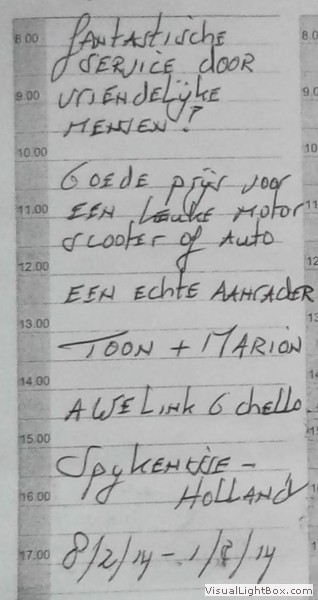 8.00
9.00
10.00
11.00
12.00
13.00
14.00
15.00
16.00
17.00
fantastische
service door
vriendelijke
mensen!
Goede prijs voor
een leuke motor
scooter of auto
een echte aanrader
Toon + Marion
chello
Spykenisse -
Holland
8/2/14 - 1/3/14
VisualLightBox.com